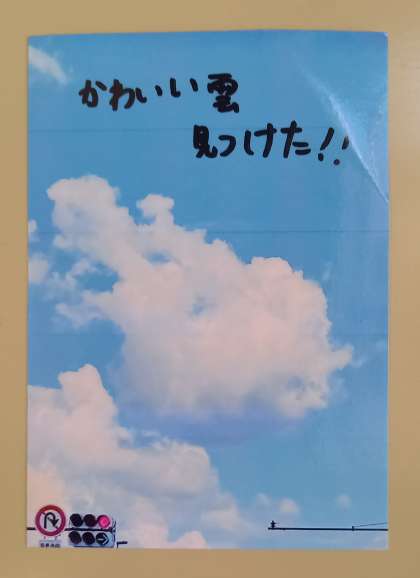 かわいい雲
見つけた!!